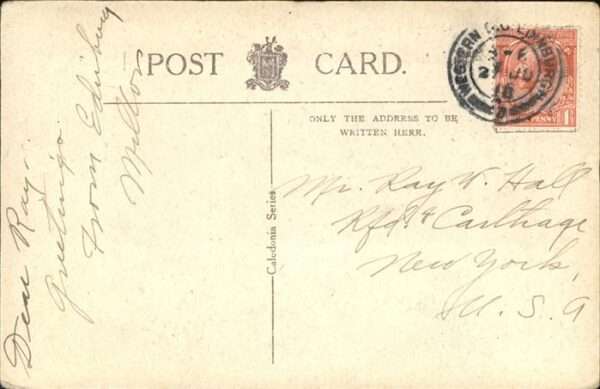 POST CARD.
ONLY THE ADDRESS TO BE
WRITTEN HERE.
Caledonia Series
Dear Ray.
Greetings
From Edinburg
Milton
Mr. Ray W. Hall
Rfd. 4 Carthage
New York,
U. S. A
WESTERN EDINBURGH
PENNY 1